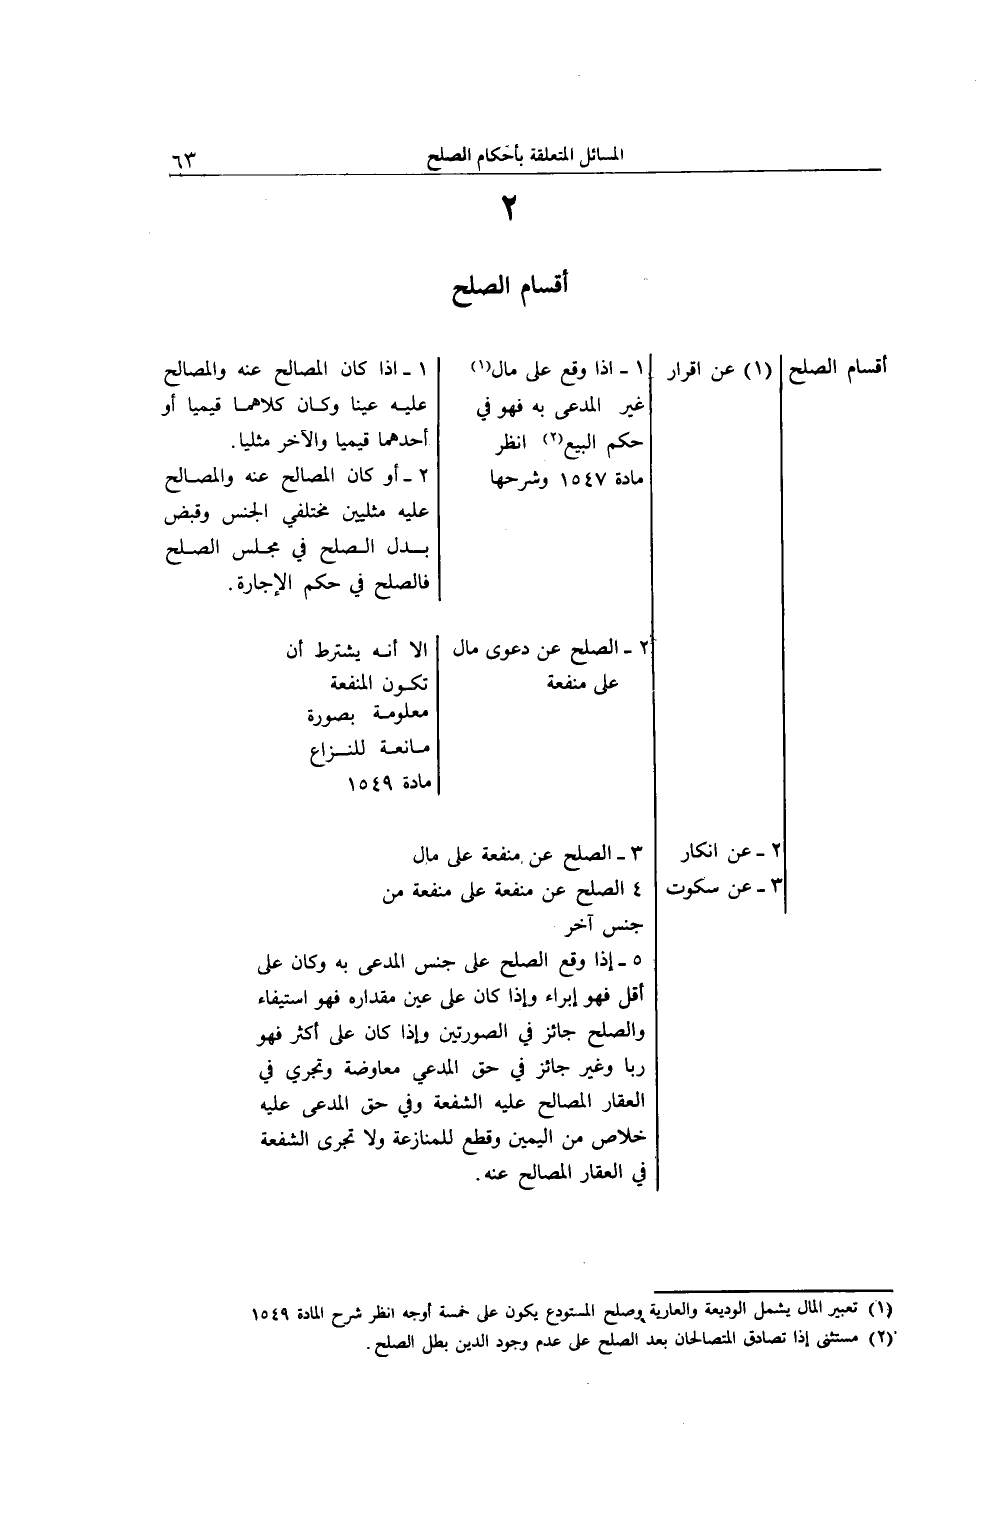 المسائل المتعلقة بأحكام الصلح ٦٣
٢
أقسام الصلح
أقسام الصلح
(١) عن اقرار
١ - اذا وقع على مال(١)
غير المدعى به فهو في
حكم البيع(٢) انظر
مادة ١٥٤٧ وشرحها
١ - اذا كان المصالح عنه والمصالح
عليه عينا وكان كلاهما قيميا أو
أحدهما قيميا والآخر مثليا.
٢ - أو كان المصالح عنه والمصالح
عليه مثليين مختلفي الجنس وقبض
بدل الصلح في مجلس الصلح
فالصلح في حكم الإجارة.
٢ - الصلح عن دعوى مال
على منفعة
الا أنه يشترط أن
تكون المنفعة
معلومة بصورة
مانعة للنزاع
مادة ١٥٤٩
٢ - عن انكار
٣ - عن سكوت
٣ - الصلح عن منفعة على مال
٤ الصلح عن منفعة على منفعة من
جنس آخر
٥ - إذا وقع الصلح على جنس المدعى به وكان على
أقل فهو إبراء وإذا كان على عين مقداره فهو استيفاء
والصلح جائز في الصورتين وإذا كان على أكثر فهو
ربا وغير جائز في حق المدعي معاوضة وتجري في
العقار المصالح عليه الشفعة وفي حق المدعى عليه
خلاص من اليمين وقطع للمنازعة ولا تجرى الشفعة
في العقار المصالح عنه.
(١) تعبير المال يشمل الوديعة والعارية وصلح المستودع يكون على خمسة أوجه انظر شرح المادة ١٥٤٩
(٢) مستثنى إذا تصادق المتصالحان بعد الصلح على عدم وجود الدين بطل الصلح.